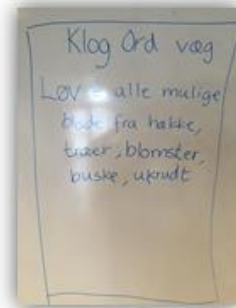 Klog Ord væg
Løv = alle mulige
både fra hække,
træer, blomster,
buske, ukrudt